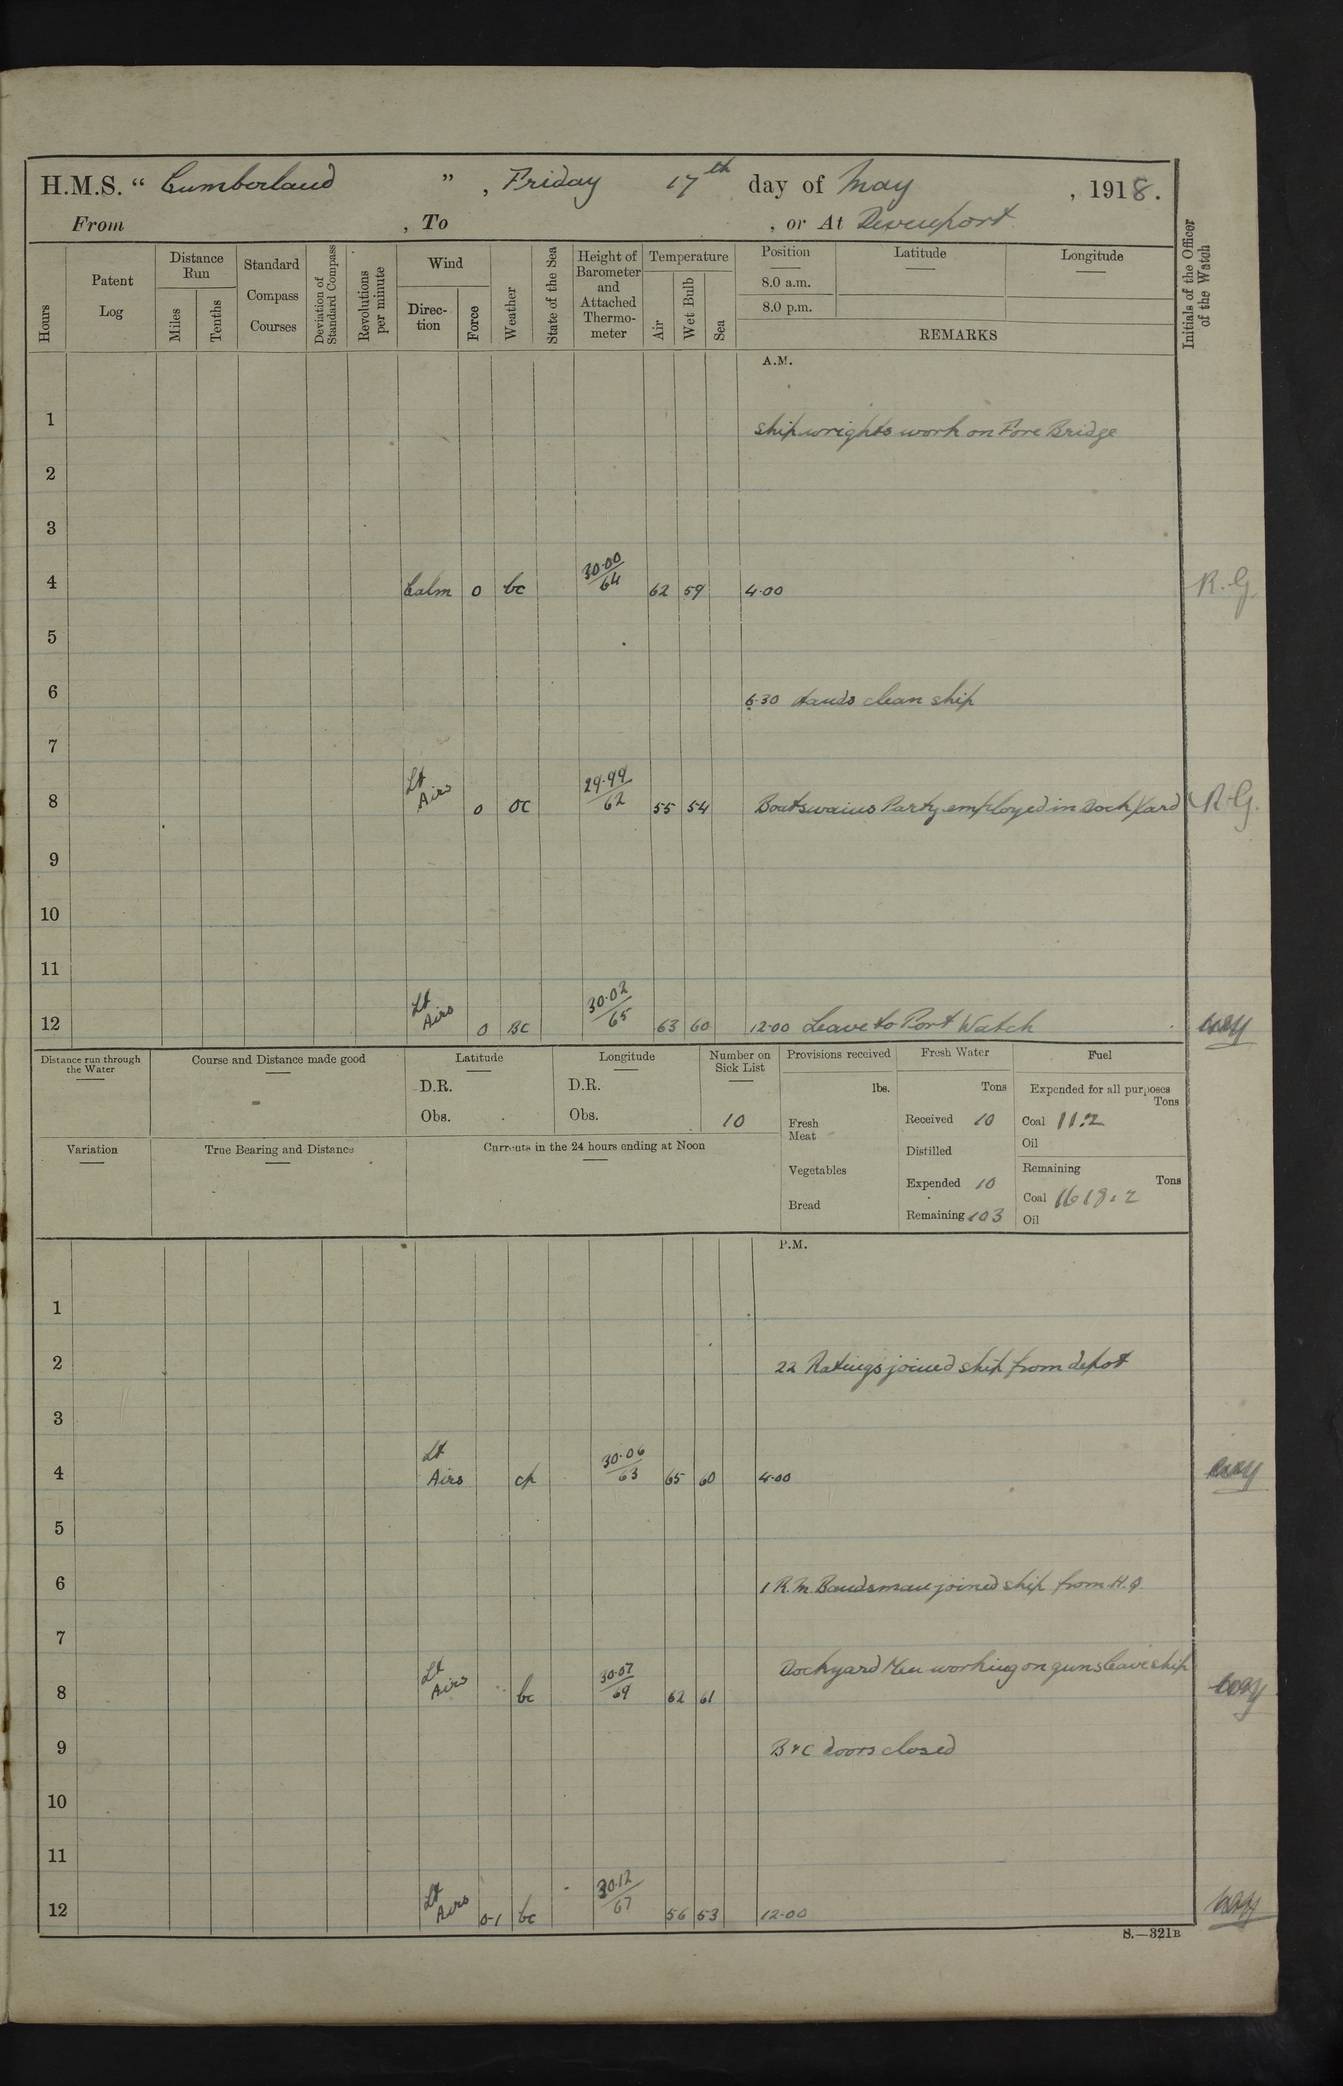 H.M.S. “ Cumberland ” , Friday 17th day of May , 1918.
From , To , or At Devonport
Hours
Patent Log
Distance Run
Miles
Tenths
Standard Compass Courses
Deviation of Standard Compass
Revolutions per minute
Wind
Direction
Force
Weather
State of the Sea
Height of Barometer and Attached Thermometer
Temperature
Air
Wet Bulb
Sea
Position
8.0 a.m.
8.0 p.m.
Latitude
Longitude
REMARKS
Initials of the Officer of the Watch
A.M.
1 Shipwrights work on Fore Bridge
2
3
4 Calm 0 bc 30.00/64 62 59 4.00 R.G.
5
6 6.30 Hands clean ship
7
8 Lt Airs 0 oc 29.99/62 55 54 Boatswains Party employed in Dock Yard R.G.
9
10
11
12 Lt Airs 0 BC 30.02/65 63 60 12.00 Leave to Port Watch
Distance run through the Water
Course and Distance made good
Latitude
D.R.
Obs.
Longitude
D.R.
Obs.
Number on Sick List
10
Provisions received
lbs.
Fresh Meat
Vegetables
Bread
Fresh Water
Tons
Received 10
Distilled
Expended 10
Remaining 103
Fuel
Expended for all purposes
Tons
Coal 11.2
Oil
Remaining
Tons
Coal 1618.2
Oil
Variation
True Bearing and Distance
Currents in the 24 hours ending at Noon
P.M.
1
2 22 Ratings joined ship from depot
3
4 Lt Airs ch 30.06/63 65 60 4.00
5
6 1 R.M. Bandsman joined ship from H.Q.
7
Dockyard Men working on guns leave ship
8 Lt Airs bc 30.07/69 62 61
9 B & C doors closed
10
11
12 Lt Airs 0-1 bc 30.12/67 56 53 12.00
S.—321B